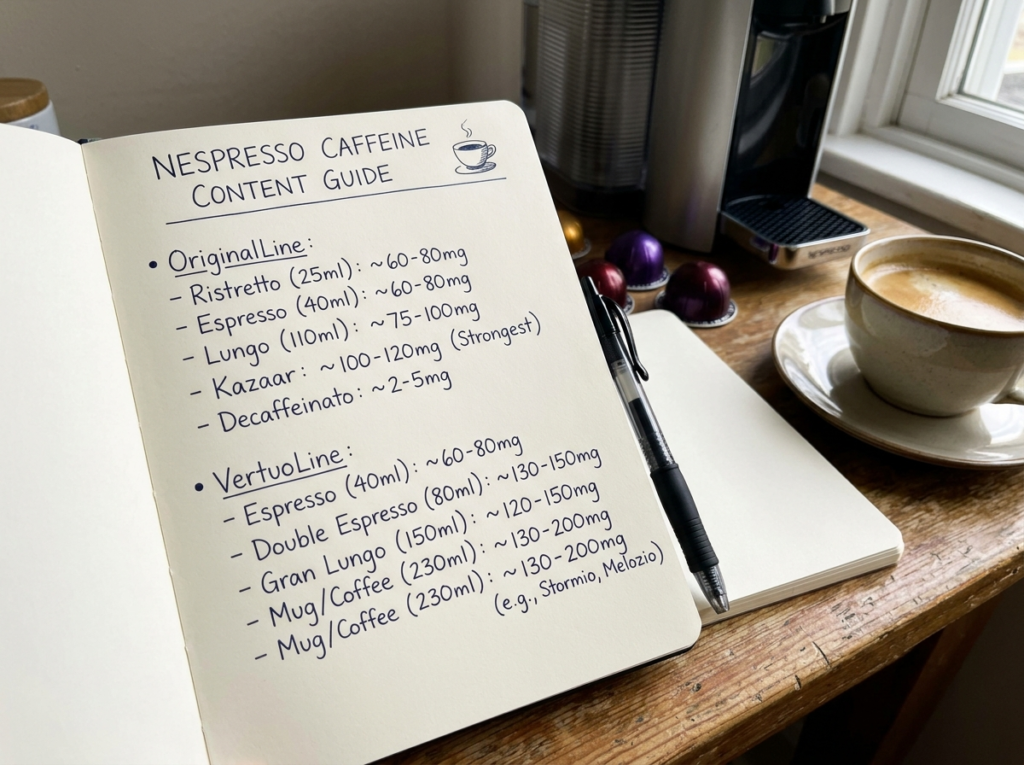 NESPRESSO CAFFEINE
CONTENT GUIDE
• OriginalLine:
- Ristretto (25ml): ~60-80mg
- Espresso (40ml): ~60-80mg
- Lungo (110ml): ~75-100mg
- Kazaar: ~100-120mg (Strongest)
- Decaffeinato: ~2-5mg
• VertuoLine:
- Espresso (40ml): ~60-80mg
- Double Espresso (80ml): ~130-150mg
- Gran Lungo (150ml): ~120-150mg
- Mug/Coffee (230ml): ~130-200mg
- Mug/Coffee (230ml): ~130-200mg
(e.g., Stormio, Melozio)
NESPRESSO